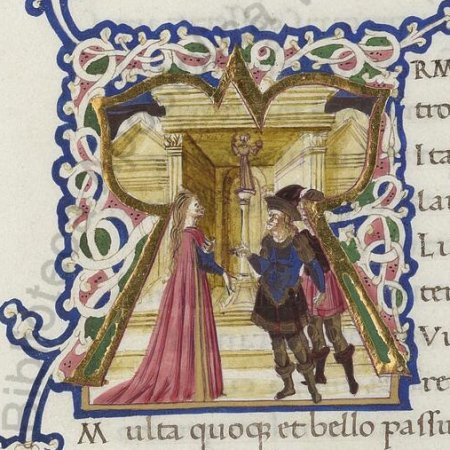 ARM
tro
Ita
Lau
Lu
ter
Vi
re
M ulta quoqȝ et bello passu